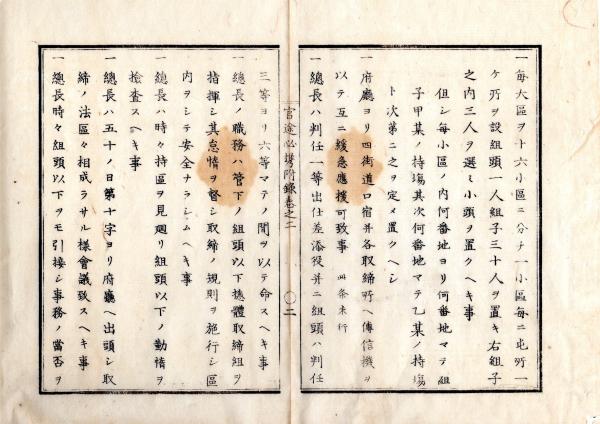 一毎大區ヲ十六小區ニ分チ一小區毎ニ屯所一
ケ所ヲ設組頭一人組子三十人ヲ置キ右組子
之内三人ヲ選ミ小頭ヲ置クヘキ事
但シ毎小區ノ内何番地ヨリ何番地マテ組
子甲某ノ持塲其次何番地マテ乙某ノ持塲
ト次第ニ之ヲ定メ置クヘシ
一府廳ヨリ四街道口宿并各取締所ヘ傳信機ヲ
以テ互ニ緩急應援可致事 此条未行
一總長ハ判任一等出仕差添役并ニ組頭ハ判任
官途必携附録巻之二 〇二
三等ヨリ六等マテノ間ヲ以テ命スヘキ事
一總長ノ職務ハ管下ノ組頭以下總體取締組ヲ
指揮シ其怠惰ヲ督シ取締ノ規則ヲ施行シ區
内ヲシテ安全ナラシムヘキ事
一總長ハ時々持區ヲ見廻リ組頭以下ノ勤惰ヲ
檢査スヘキ事
一總長ハ五十ノ日第十字ヨリ府廳ヘ出頭シ取
締ノ法區々相成ラサル樣會議致スヘキ事
一總長時々組頭以下ヲモ引接シ事務ノ當否ヲ